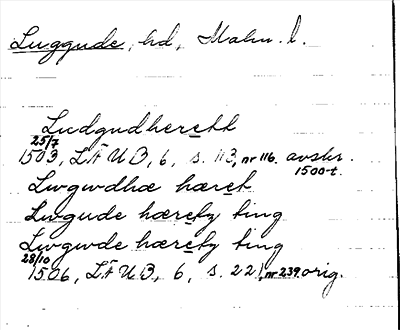 Luggude, hd, Malm. l.
Ludgudhereth
25/7
1503, LÄUB, 6, s. 113, nr 116. avskr.
1500-t.
Lwgwdhæ hæret
Lwgude hærety ting
Lwgwde hærety ting
28/10
1506, LÄUB, 6, s. 221, nr 239. orig.